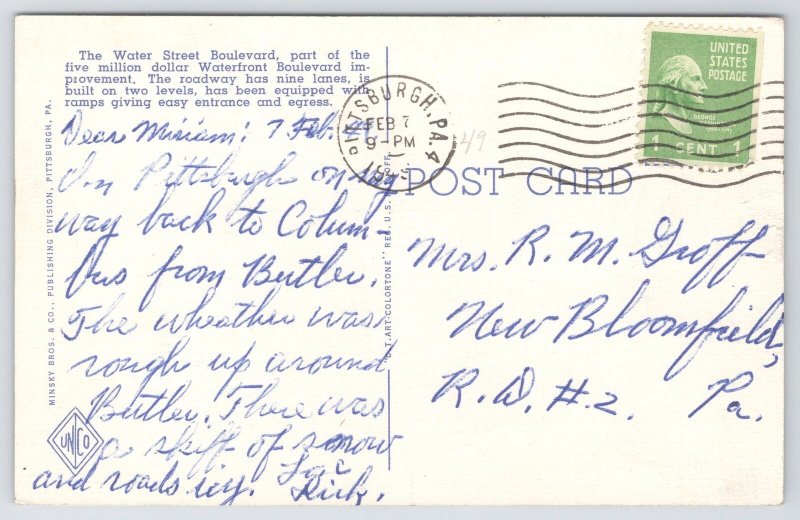 The Water Street Boulevard, part of the
five million dollar Waterfront Boulevard im-
provement. The roadway has nine lanes, is
built on two levels, has been equipped with
ramps giving easy entrance and egress.
Dear Miriam: 7 Feb.
In Pittsburgh on my
way back to Colum-
bus from Butler.
The wheather was
rough up around
Butler. There was
a skiff of snow
and roads icy.
Dick.
MINSKY BROS. & CO., PUBLISHING DIVISION, PITTSBURGH, PA.
UN Co
"C.T. ART-COLORTONE" REG. U.S. OFF.
PITTSBURGH, PA. 4
FEB 7
9-PM
49
UNITED
STATES
POSTAGE
GEORGE
1 CENT 1
POST CARD
Mrs. R. M. Groff
New Bloomfield,
R.D. #2. Pa.